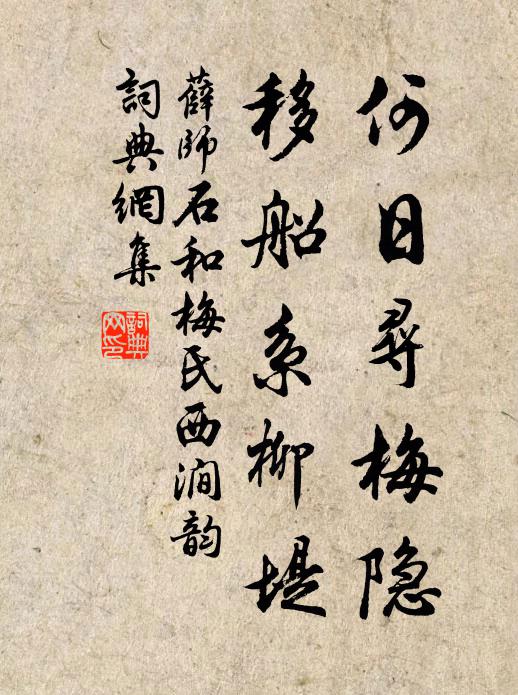 何日尋梅隐
移船系柳堤
薛師石和梅氏西澗韵
詞典網集
詞典網印